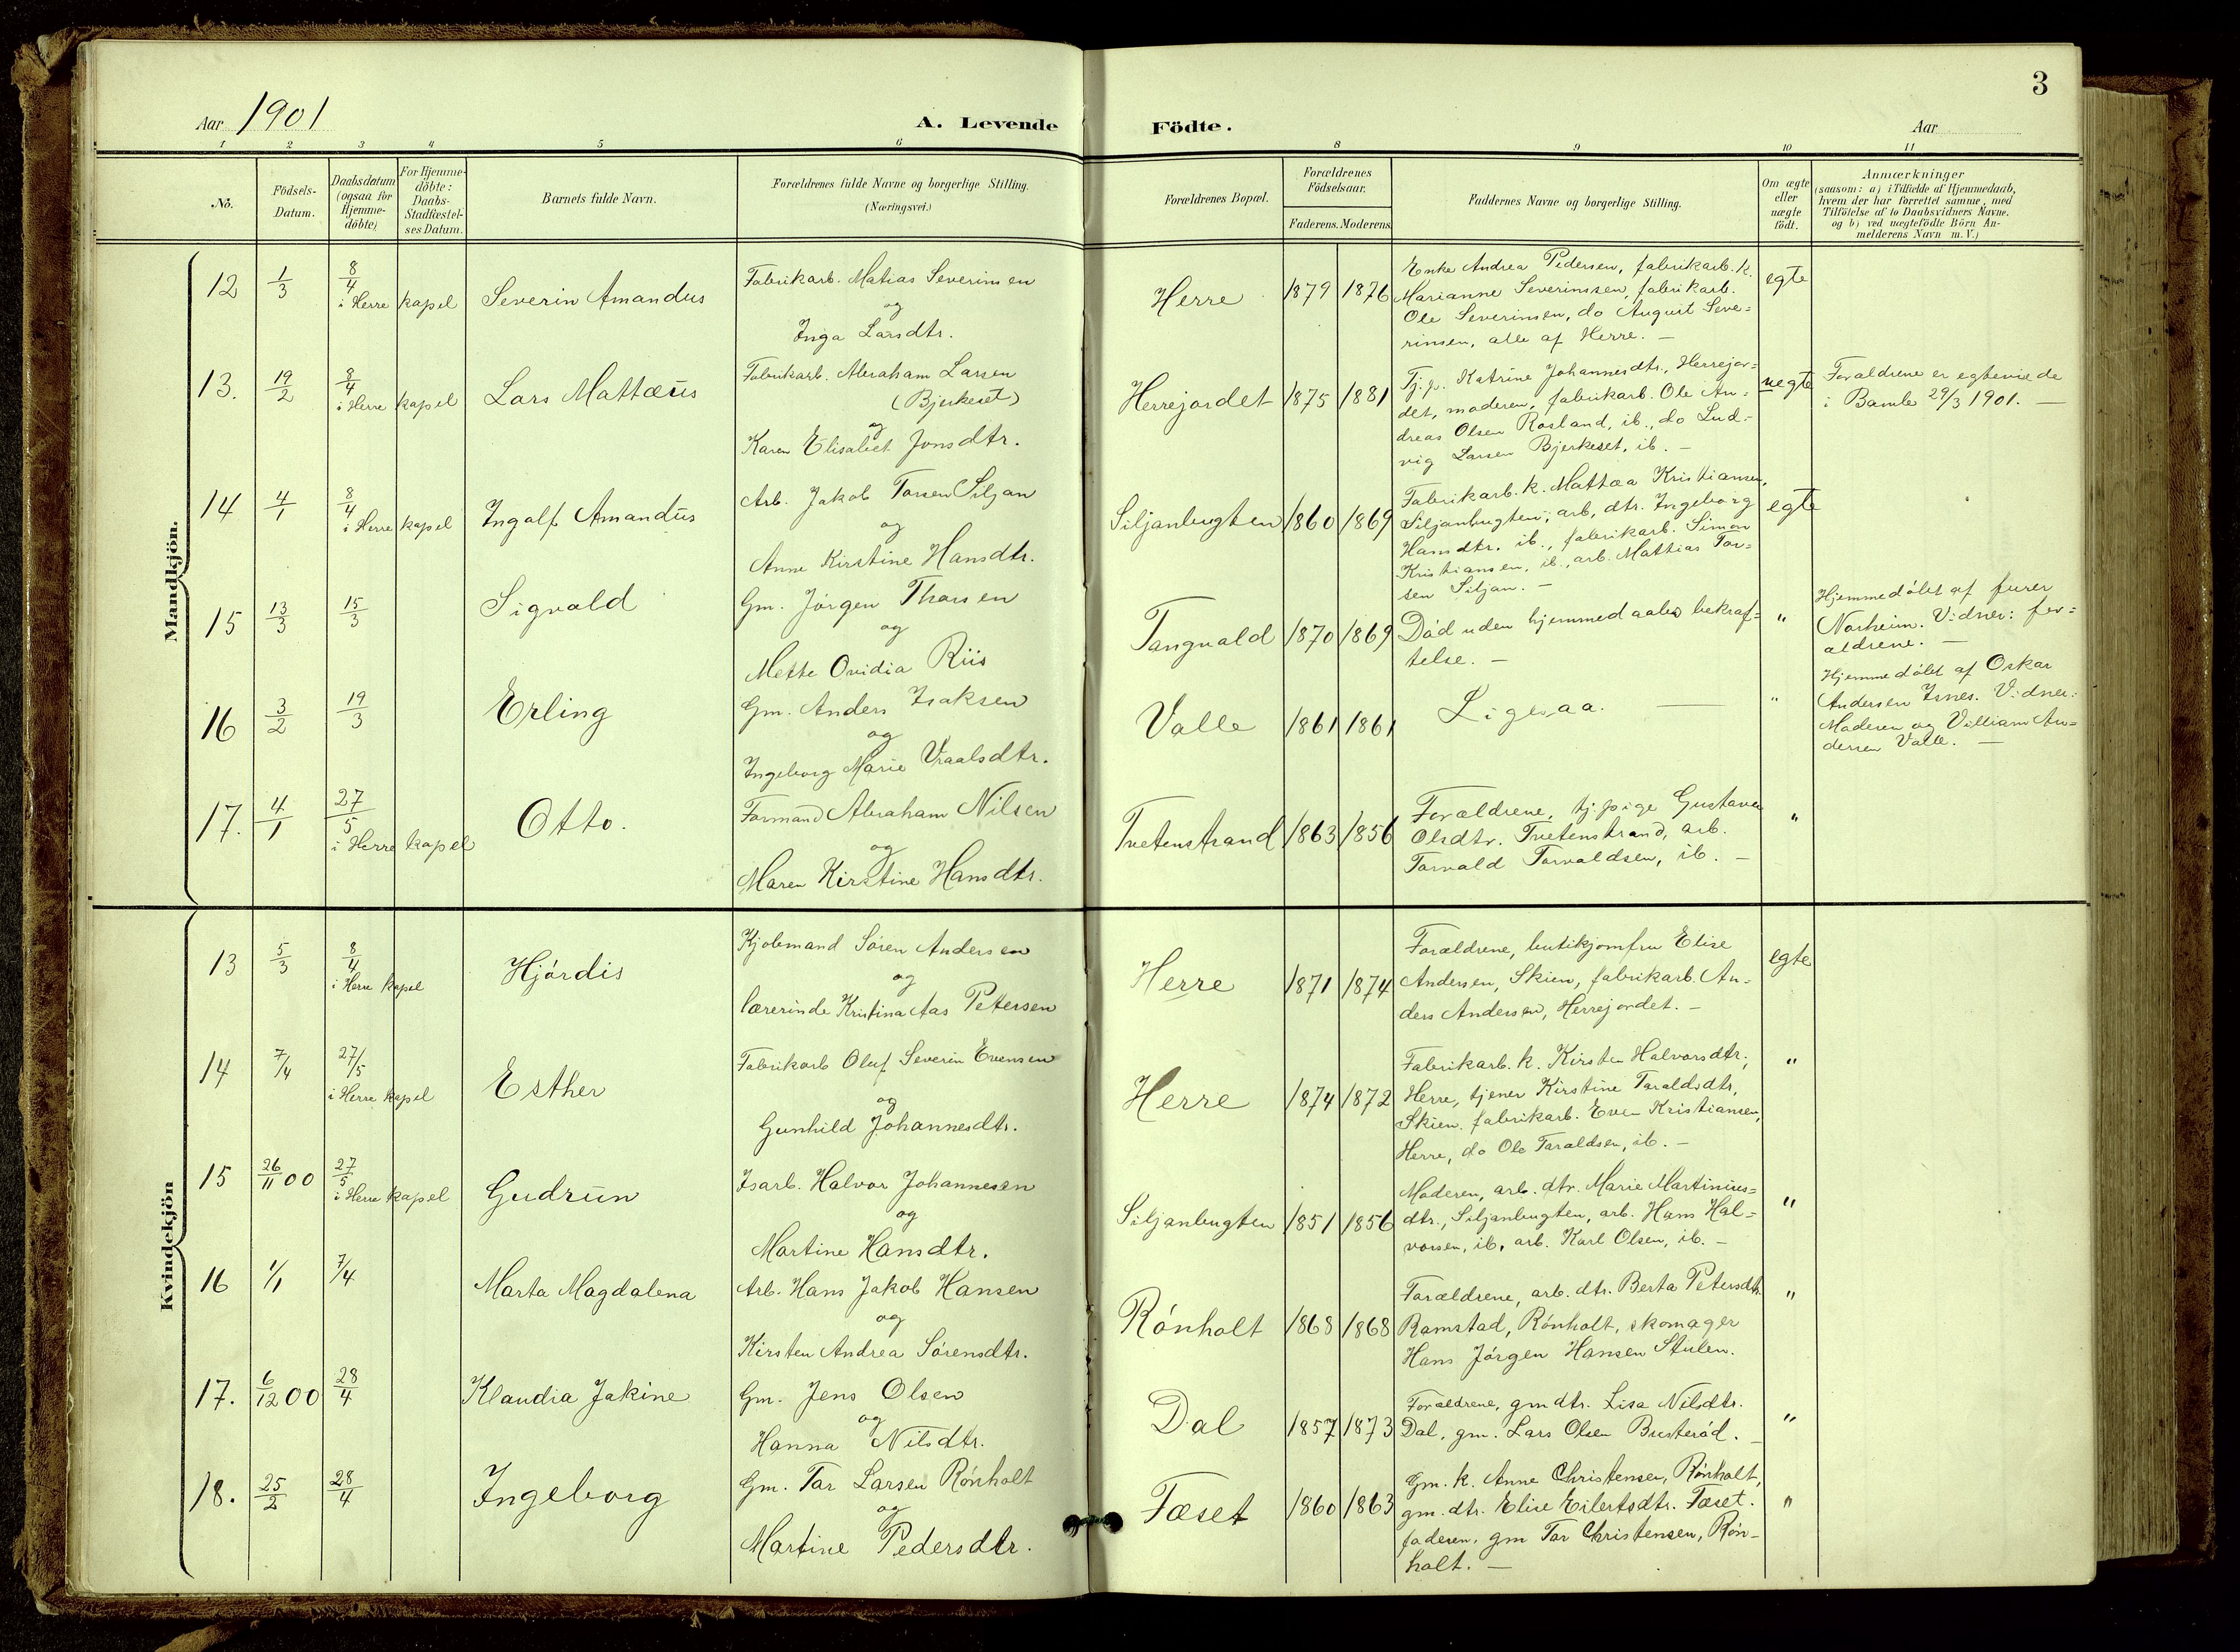 3
Aar 1901
A. Levende Födte.
Aar
1 2 3 4 5 6 8 9 10 11
No.
Födsels-Datum.
Daabsdatum (ogsaa for Hjemme-döbte)
For Hjemme-döbte: Daabs-Stadfæstel-ses Datum.
Barnets fulde Navn.
Forældrenes fulde Navne og borgerlige Stilling.
(Næringsvei.)
Forældrenes Bopæl.
Forældrenes Födselsaar.
Faderens. Moderens.
Faddernes Navne og borgerlige Stilling.
Om ægte eller uægte födt.
Anmærkninger
(saasom: a) i Tilfælde af Hjemmedaab,
hvem der har forrettet samme, med
Tilföielse af to Daabsvidners Navne.
og b) ved uægtefödte Börn An-
melderens Navn m. V.)
Mandkjön.
12 1/3 8/4 i Herre kapel Severin Amandus
Fabrikarb. Matias Severinsen
og
Inga Larsdtr.
Herre 1879 1876
Enke Andrea Pedersen, fabrikarb. k.
Marianne Severinssen, fabrikarb.
Ole Severinsen, do August Seve-
rinsen, alle af Herre. —
egte
13. 19/2 8/4 i Herre kapel Lars Mattæus
Fabrikarb. Abraham Larsen
(Bjerkeset)
og
Karen Elisabet Jonsdtr.
Herrejordet 1875 1881
Tj.p. Katrine Johannesdtr., Herrejor-
det, moderen, fabrikarb. Ole An-
dreas Olsen Rosland, ib., do Lud-
vig Larsen Bjerkeset, ib. —
uegte
Forældrene er egteviede
i Bamle 29/3 1901. —
14 4/1 8/4 i Herre kapel Ingolf Amandus
Arb. Jakob Torsen Siljan
og
Anne Kirstine Hansdtr.
Siljanbugten 1860 1869
Fabrikarb. k. Mattæa Kristiansen,
Siljanbugten, arb. dtr. Ingeborg
Hansdtr. ib., fabrikarb. Simon
Kristiansen, ib., arb. Mattias Tor-
sen Siljan. —
egte
15 13/3 15/3 Sigvald
Gm. Jörgen Thorsen
og
Mette Ovidia Riis
Tangvald 1870 1869
Död uden hjemmedaabs bekræf-
telse. —
"
Hjemmedöbt af furer
Norheim. Vidner: for-
ældrene. —
16 3/2 19/3 Erling
Gm. Anders Isaksen
og
Ingeborg Marie Vraalsdtr.
Valle 1861 1861
Ligesaa. —
"
Hjemmedöbt af Oskar
Andersen Isnes. Vidner:
Moderen og Villiam An-
dersen Valle. —
17. 4/1 27/5 i Herre kapel Otto.
Formand Abraham Nilsen
og
Maren Kirstine Hansdtr.
Tvetenstrand 1863 1856
Forældrene, tj.pige Gustava
Olsdtr. Tvetenstrand, arb.
Torvald Torvaldsen, ib. —
"
Kvindekjön
13 5/3 8/4 i Herre kapel Hjördis
Kjöbmand Sören Andersen
og
lærerinde Kristina Aas Petersen
Herre 1871 1874
Forældrene, butikjomfru Elise
Andersen, Skien, fabrikarb. An-
ders Andersen, Herrejordet. —
egte
14 7/4 27/5 i Herre kapel Esther
Fabrikarb Oluf Severin Evensen
og
Gunhild Johannesdtr.
Herre 1874 1872
Fabrikarb. k. Kirsten Halvorsdtr.,
Herre, tjener Kirstine Taraldsdtr,
Skien, fabrikarb. Even Kristiansen,
Herre, do Ole Taraldsen, ib. —
"
15 26/11 00 27/5 i Herre kapel Gudrun
Isarb. Halvor Johannesen
og
Martine Hansdtr.
Siljanbugten 1851 1856
Moderen, arb. dtr. Marie Martinius-
dtr., Siljanbugten, arb. Hans Hal-
vorsen, ib, arb. Karl Olsen, ib. —
"
16 1/1 7/4 Marta Magdalena
Arb. Hans Jakob Hansen
og
Kirsten Andrea Sörensdtr.
Rönholt 1868 1868
Forældrene, arb. dtr. Berta Petersdtr.
Ramstad, Rönholt, skomager
Hans Jörgen Hansen Stulen.
"
17. 6/12 00 28/4 Klaudia Jakine
Gm. Jens Olsen
og
Hanna Nilsdtr.
Dal 1857 1873
Forældrene, gmdtr. Lisa Nilsdtr.
Dal, gm. Lars Olsen Busteröd. —
"
18. 25/2 28/4 Ingeborg
Gm. Tor Larsen Rönholt
og
Martine Pedersdtr.
Fæset 1860 1863
Gm. k. Anne Christensen, Rönholt,
gm. dtr. Elise Eilertsdtr. Fæset.
faderen, gm Tor Christensen, Rön-
holt. —
"